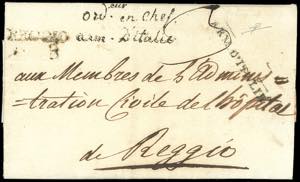 eur
Ord. en Chef
arm. D'Italie
REGGIO
aux Membres de L'Admini
tration Civile de l'hopital
de Reggio